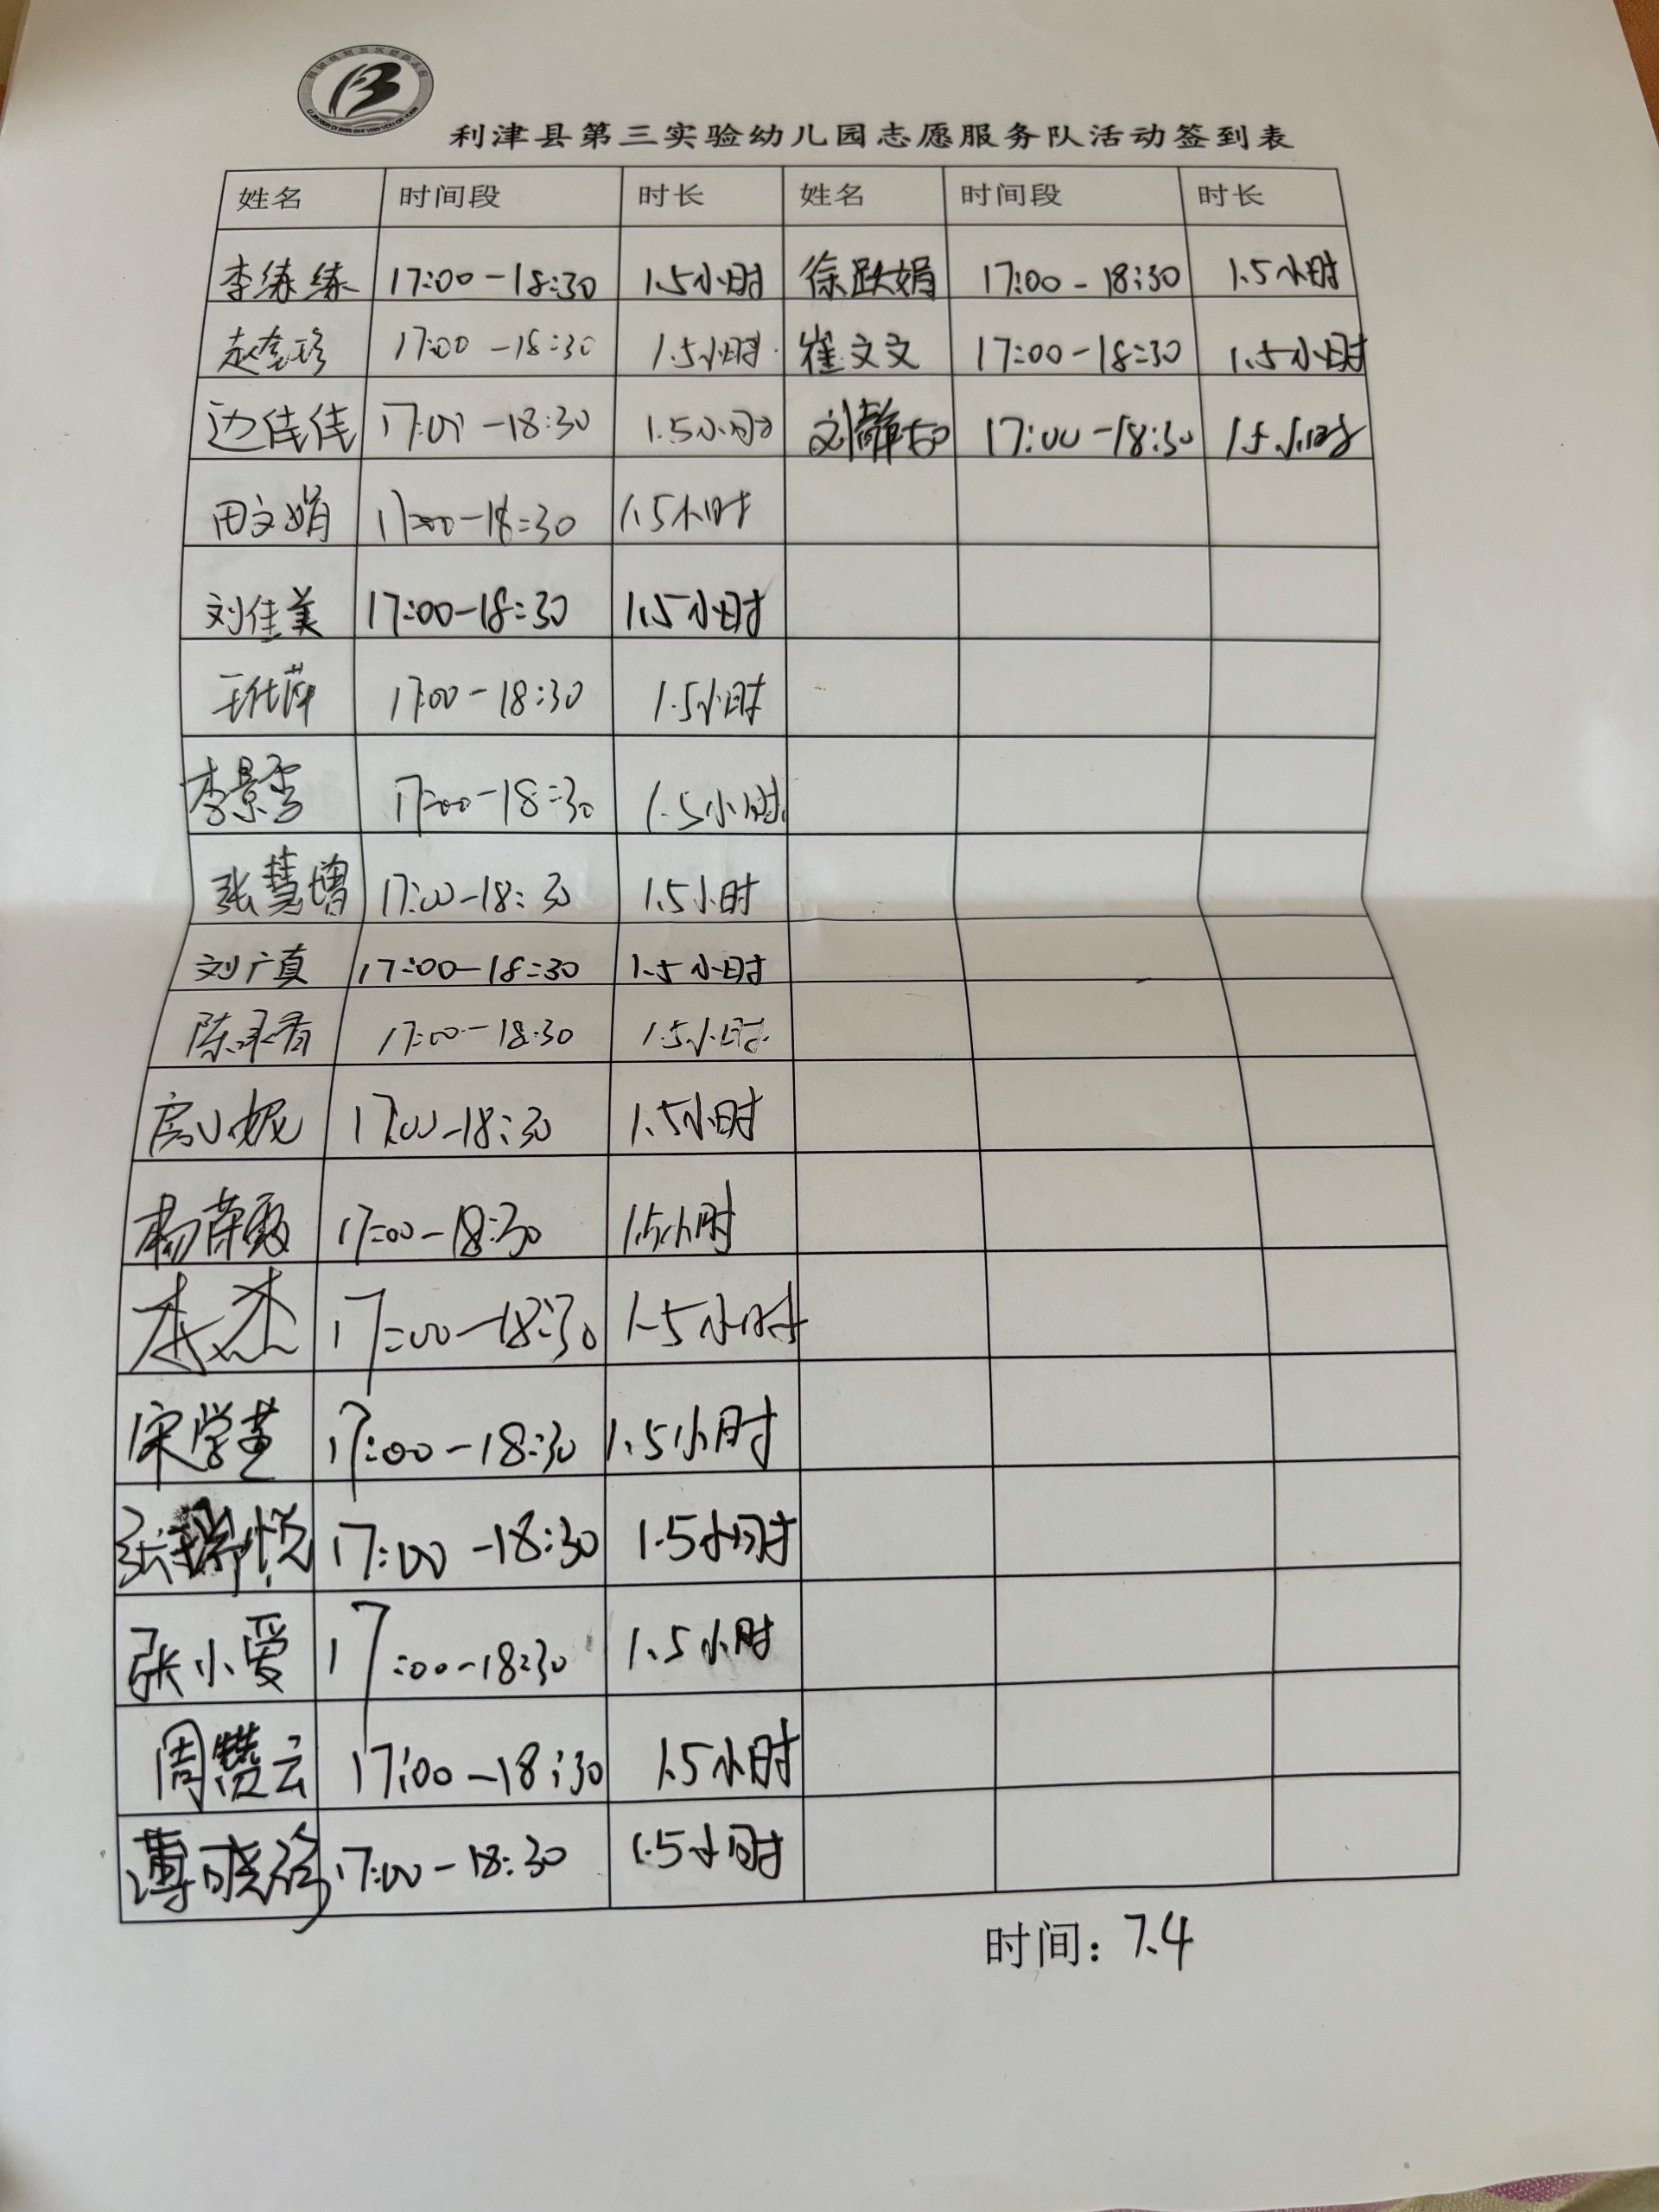 利津县第三实验幼儿园志愿服务队活动签到表
姓名 时间段 时长 姓名 时间段 时长
李练练 17:00-18:30 1.5小时 徐跃娟 17:00-18:30 1.5小时
17:00-18:30 1.5小时 崔文文 17:00-18:30 1.5小时
边佳佳 17:00-18:30 1.5小时 刘静茹 17:00-18:30 1.5小时
田文娟 17:00-18:30 1.5小时
刘佳美 17:00-18:30 1.5小时
17:00-18:30 1.5小时
李景雪 17:00-18:30 1.5小时
张慧增 17:00-18:30 1.5小时
刘广真 17:00-18:30 1.5小时
17:00-18:30 1.5小时
房小妮 17:00-18:30 1.5小时
17:00-18:30 1.5小时
李杰 17:00-18:30 1.5小时
17:00-18:30 1.5小时
张瑞悦 17:00-18:30 1.5小时
张小爱 17:00-18:30 1.5小时
周赞云 17:00-18:30 1.5小时
17:00-18:30 1.5小时
时间: 7.4